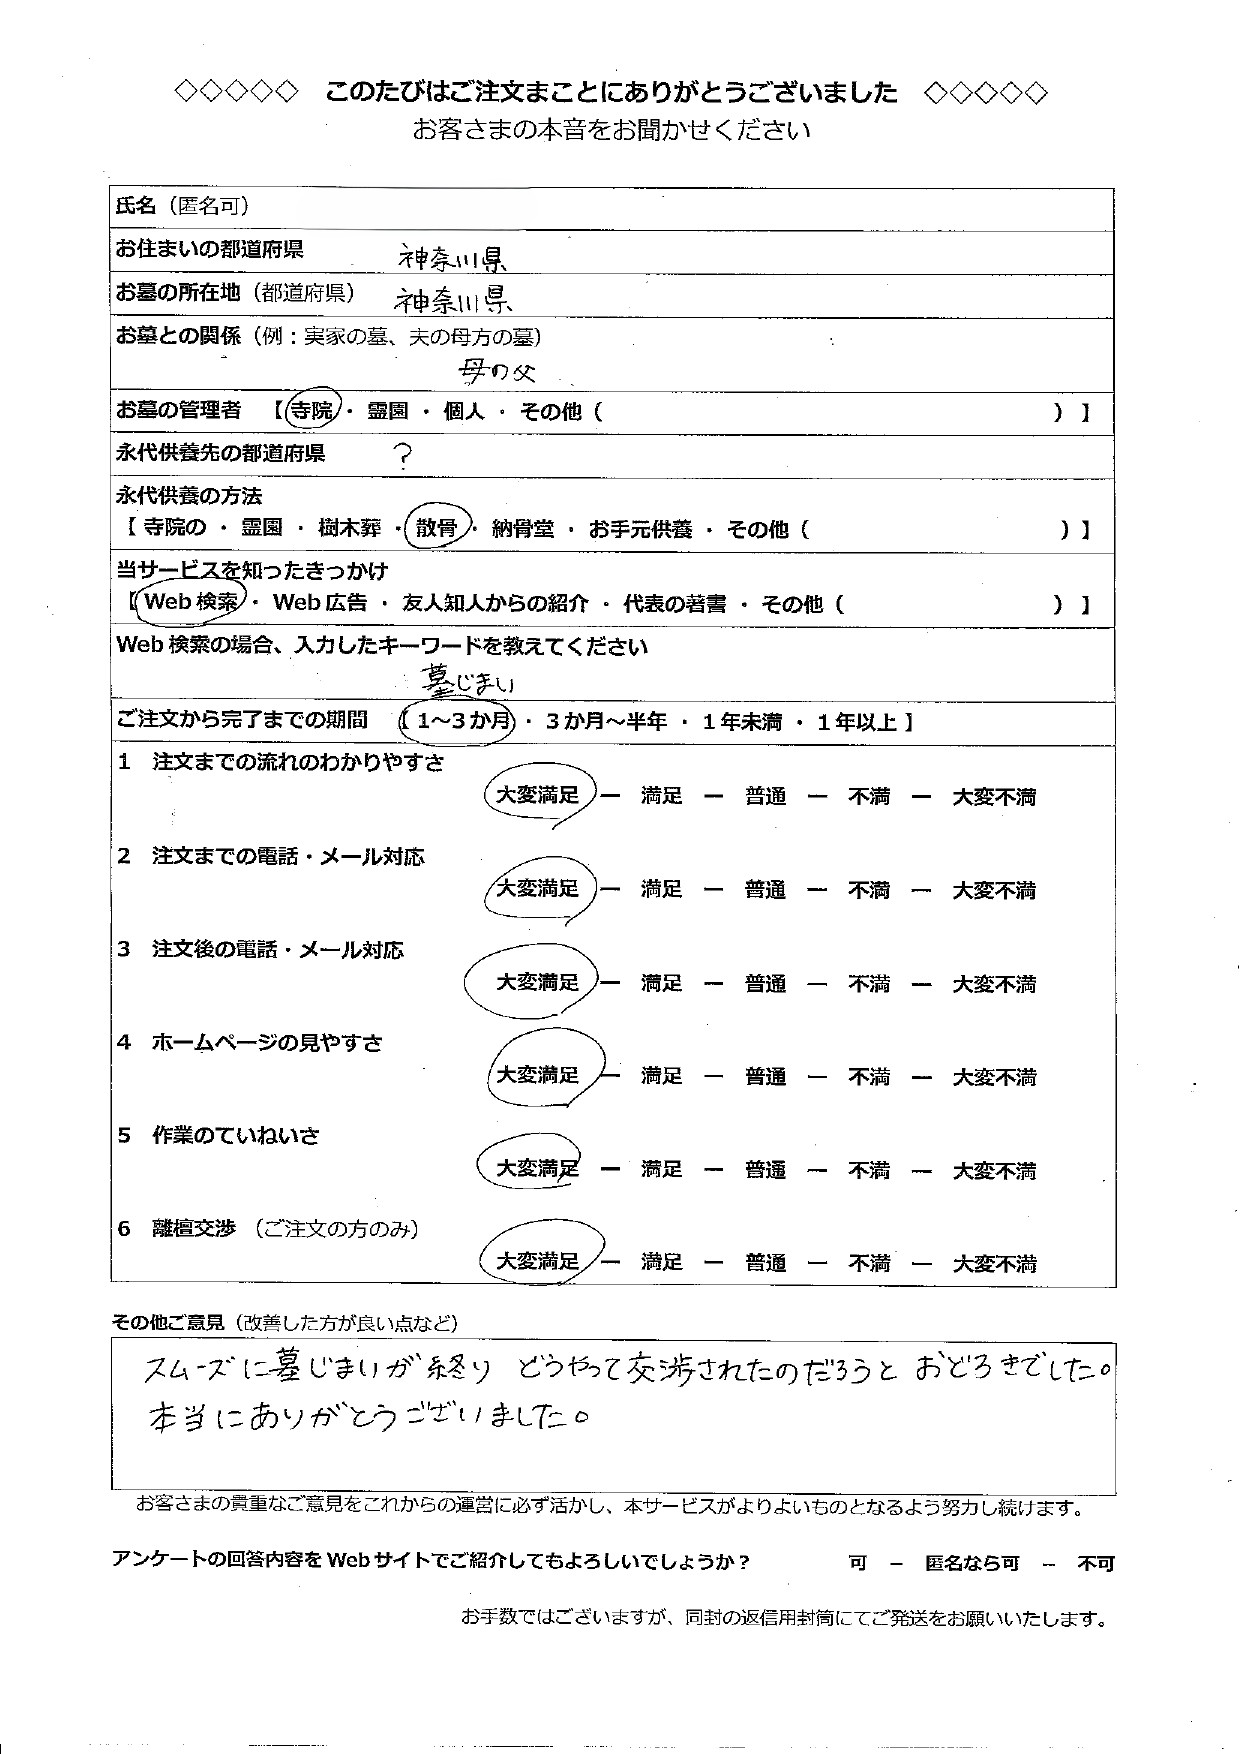 ◇◇◇◇◇ このたびはご注文まことにありがとうございました ◇◇◇◇◇
お客さまの本音をお聞かせください
氏名（匿名可）
お住まいの都道府県 神奈川県
お墓の所在地（都道府県） 神奈川県
お墓との関係（例：実家の墓、夫の母方の墓）
母の父
お墓の管理者 【 寺院 ・ 霊園 ・ 個人 ・ その他（ ） 】
永代供養先の都道府県 ?
永代供養の方法
【 寺院の ・ 霊園 ・ 樹木葬 ・ 散骨 ・ 納骨堂 ・ お手元供養 ・ その他（ ） 】
当サービスを知ったきっかけ
【 Web 検索 ・ Web 広告 ・ 友人知人からの紹介 ・ 代表の著書 ・ その他（ ） 】
Web 検索の場合、入力したキーワードを教えてください
墓じまい
ご注文から完了までの期間 【 1～3 か月 ・ 3 か月～半年 ・ 1 年未満 ・ 1 年以上 】
1 注文までの流れのわかりやすさ
大変満足 ― 満足 ― 普通 ― 不満 ― 大変不満
2 注文までの電話・メール対応
大変満足 ― 満足 ― 普通 ― 不満 ― 大変不満
3 注文後の電話・メール対応
大変満足 ― 満足 ― 普通 ― 不満 ― 大変不満
4 ホームページの見やすさ
大変満足 ― 満足 ― 普通 ― 不満 ― 大変不満
5 作業のていねいさ
大変満足 ― 満足 ― 普通 ― 不満 ― 大変不満
6 離檀交渉 （ご注文の方のみ）
大変満足 ― 満足 ― 普通 ― 不満 ― 大変不満
その他ご意見（改善した方が良い点など）
スムーズに墓じまいが終り どうやって交渉されたのだろうと おどろきでした。
本当にありがとうございました。
お客さまの貴重なご意見をこれからの運営に必ず活かし、本サービスがよりよいものとなるよう努力し続けます。
アンケートの回答内容を Web サイトでご紹介してもよろしいでしょうか？ 可 － 匿名なら可 － 不可
お手数ではございますが、同封の返信用封筒にてご発送をお願いいたします。